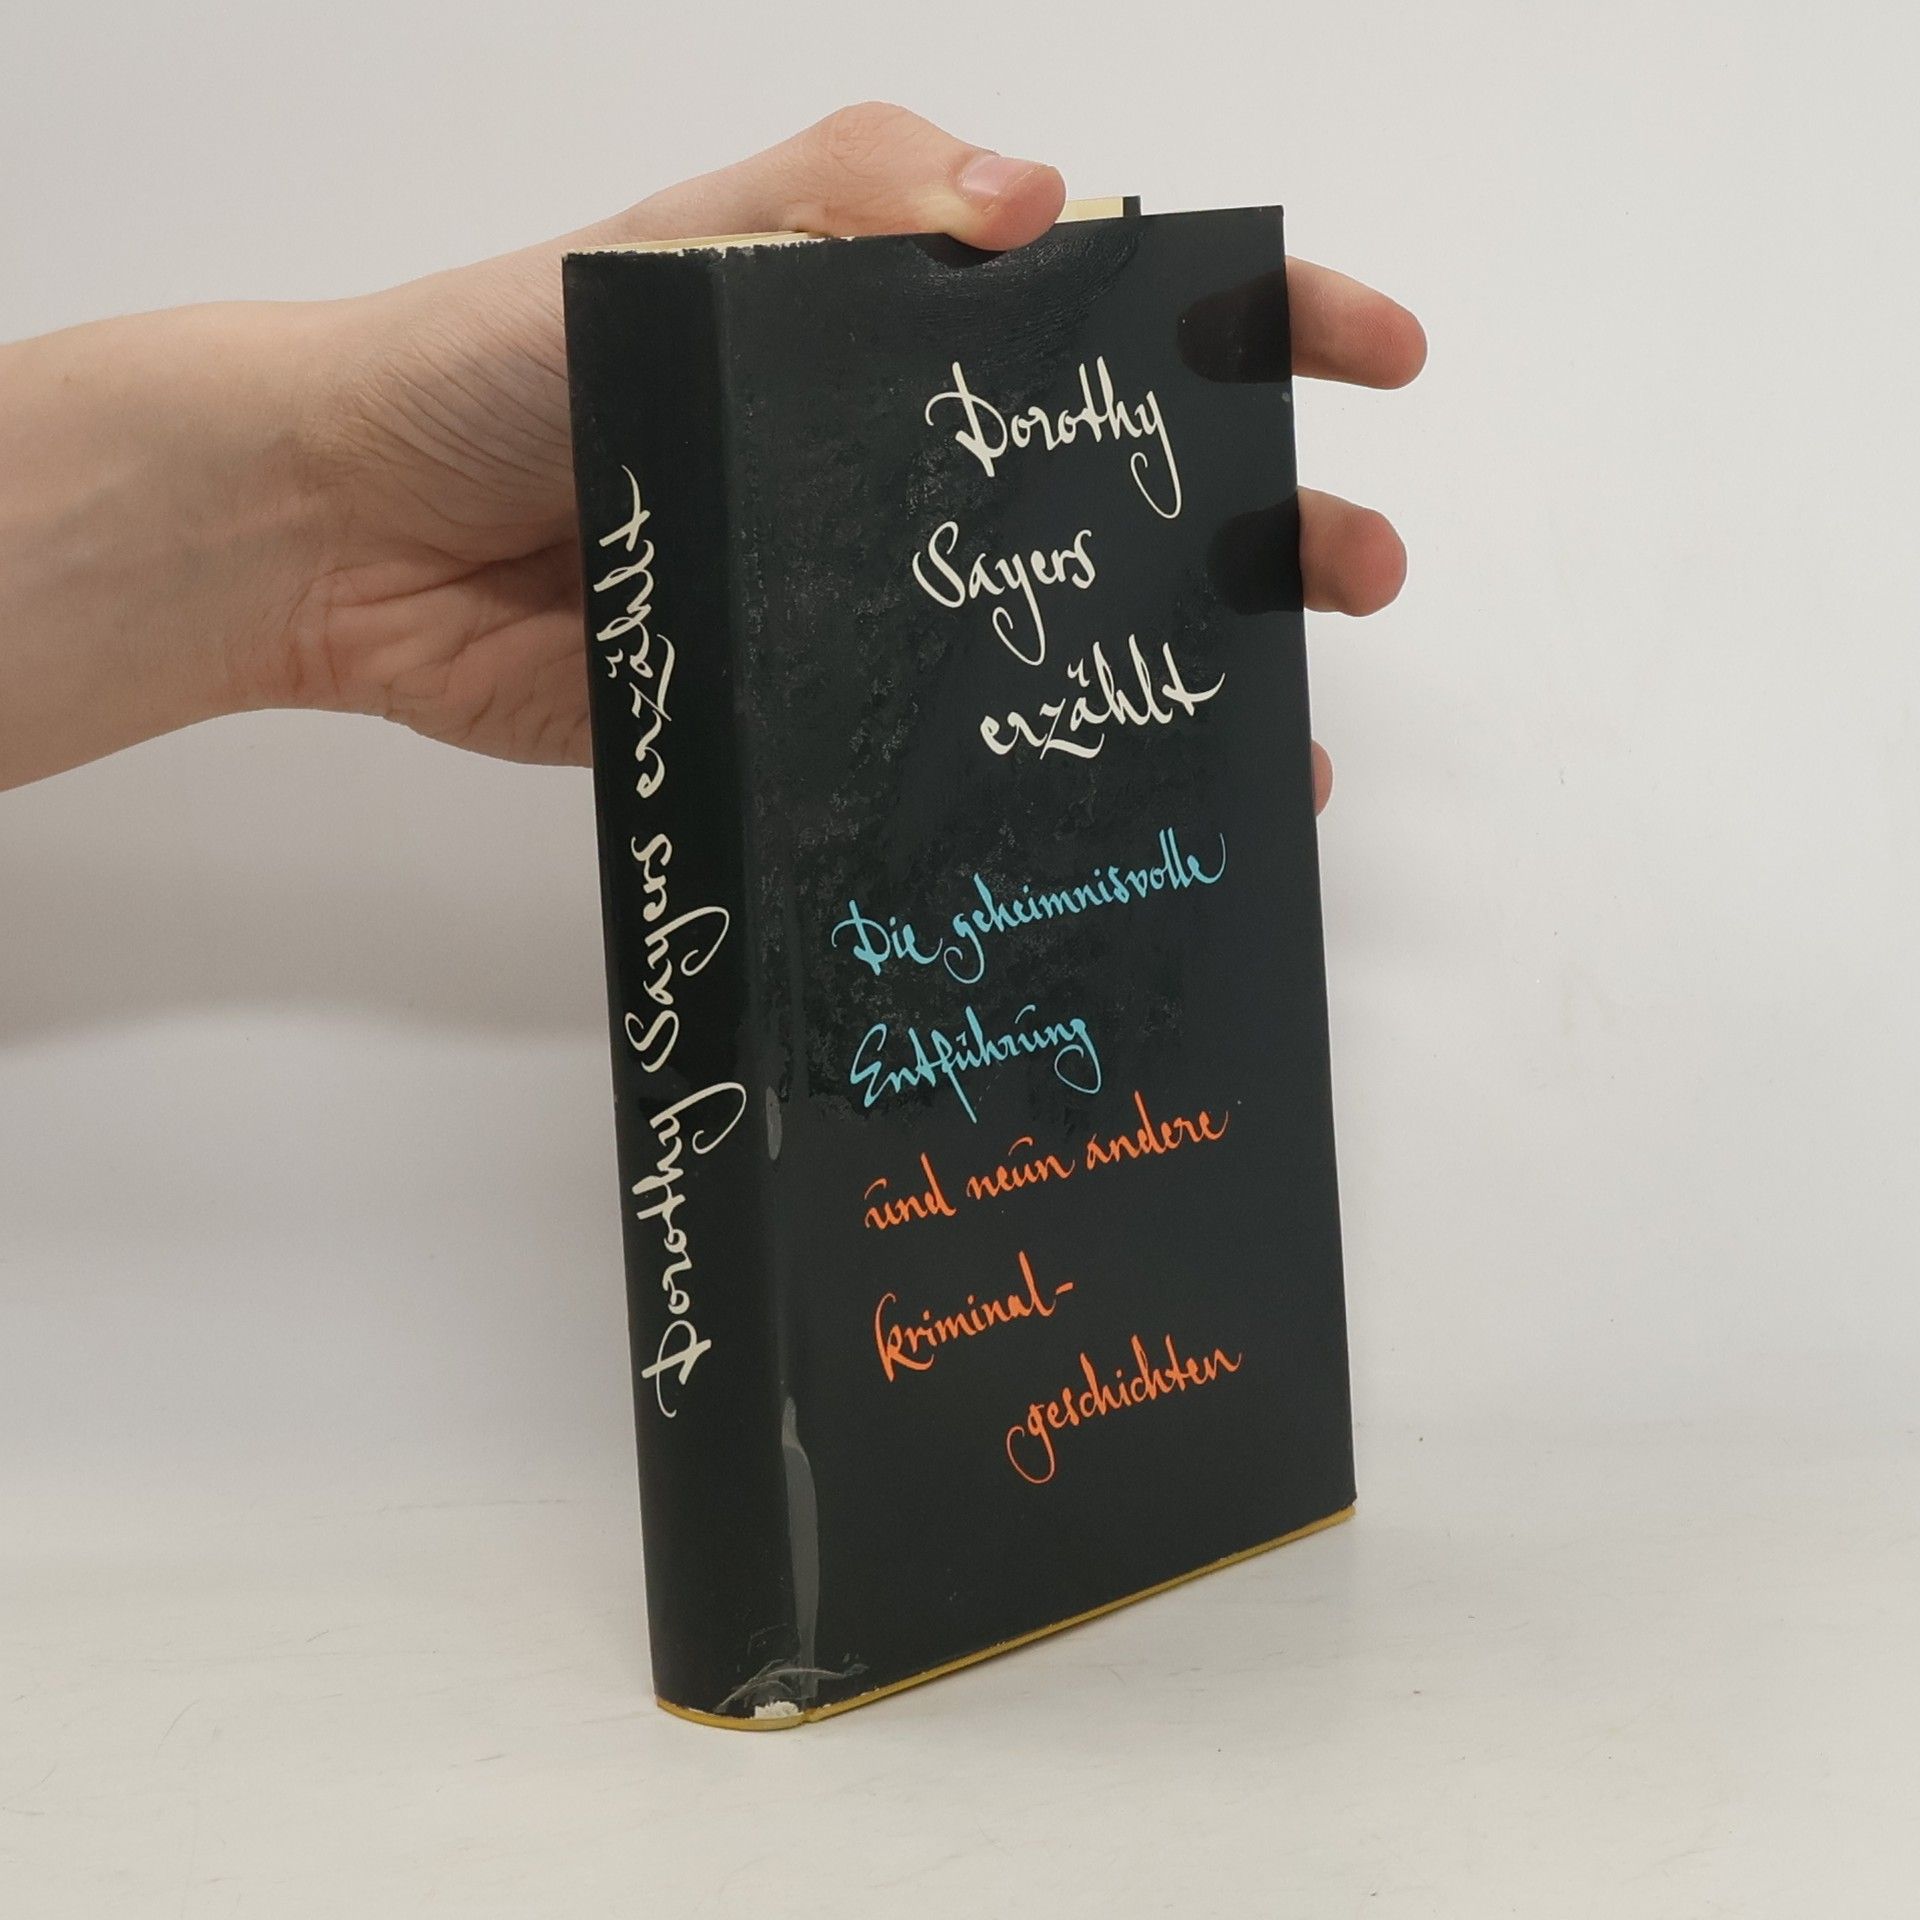 Dorothy Sayers erzählt
Dorothy
Sayers
erzählt
Die geheimnisvolle
Entführung
und neun andere
kriminal-
geschichten